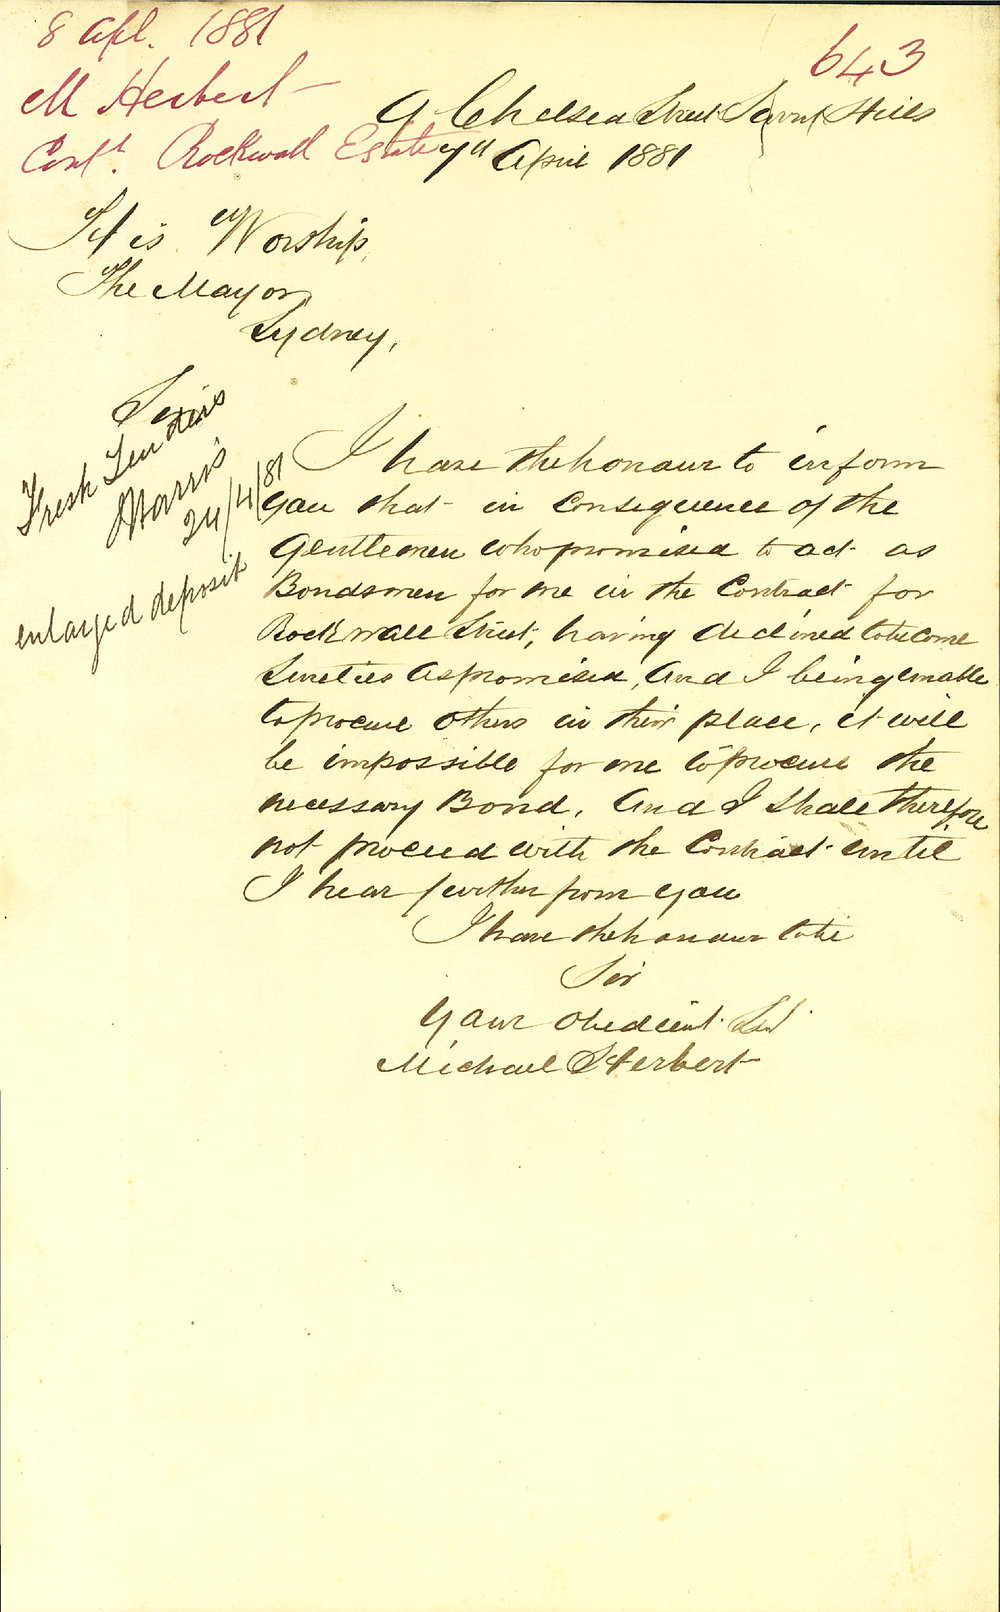 8 Apl. 1881
643
M Herbert
Cont. Rockwall Estate
9 Chelsea Street Surry Hills
7th April 1881
His Worship,
The Mayor
Sydney,
Sir
Fresh Tenders
24/4/81
enlarged deposit
I have the honour to inform
you that in consequence of the
Gentlemen who promised to act as
Bondsmen for me in the Contract for
Rockwall Street, having declined to become
Sureties as promised, and I being unable
to procure others in their place, it will
be impossible for me to procure the
necessary Bond. And I shall therefore
not proceed with the Contract until
I hear further from you
I have the honour to be
Sir
Your obedient Svt.
Michael Herbert